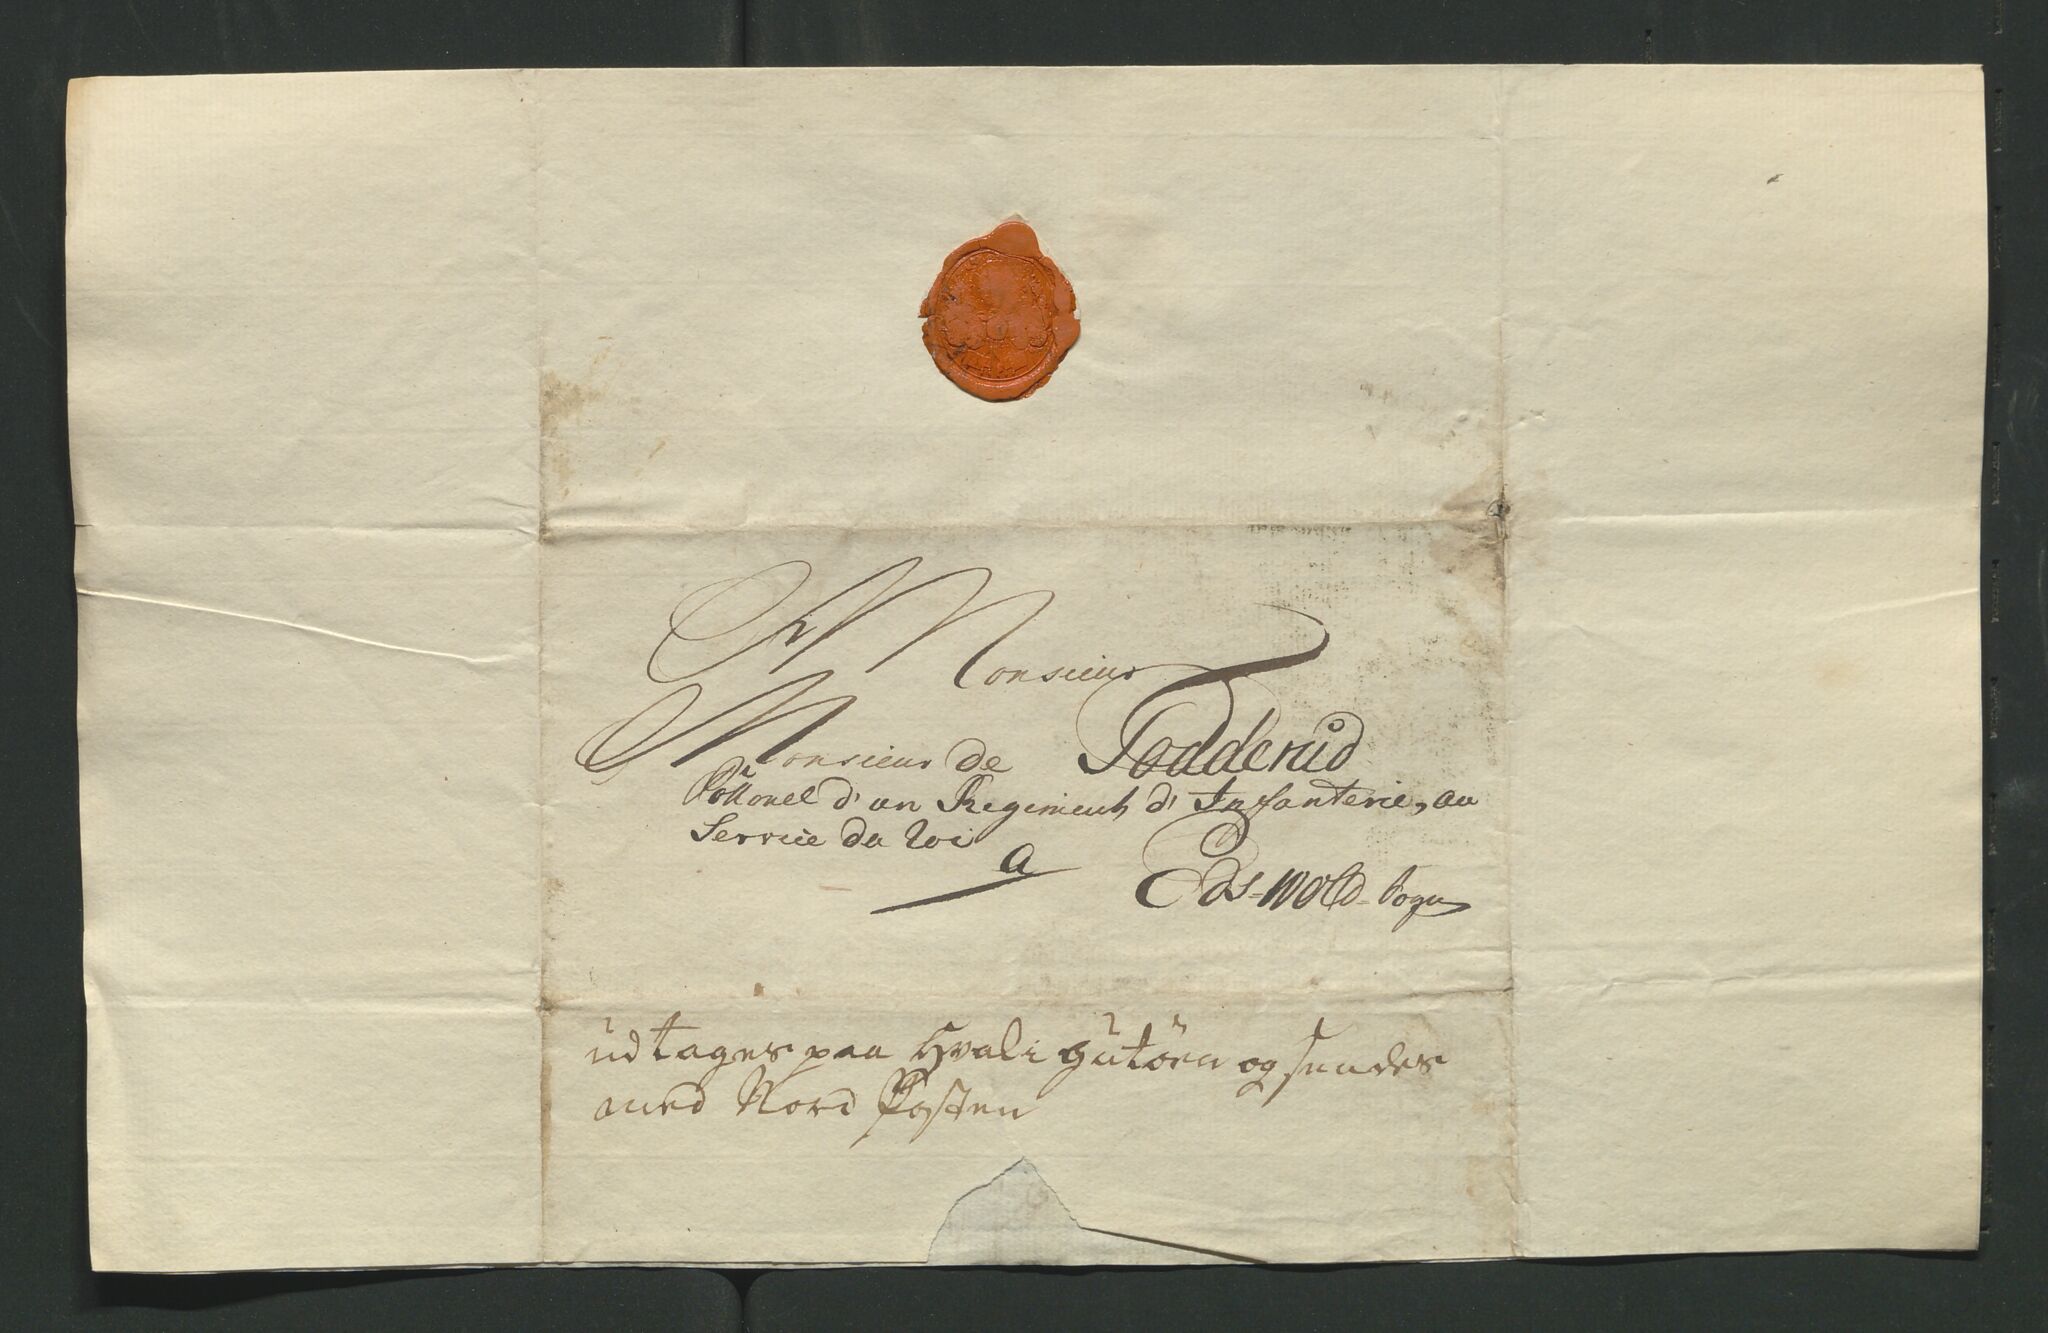 A Monsieur
Monsieur de Todderud
Collonel d'un Regiment d'Infanterie, au
Service du Roi
a Eds-Wold-bogn
üdtages paa Hvali Gütöen og sendes
med Nord Posten